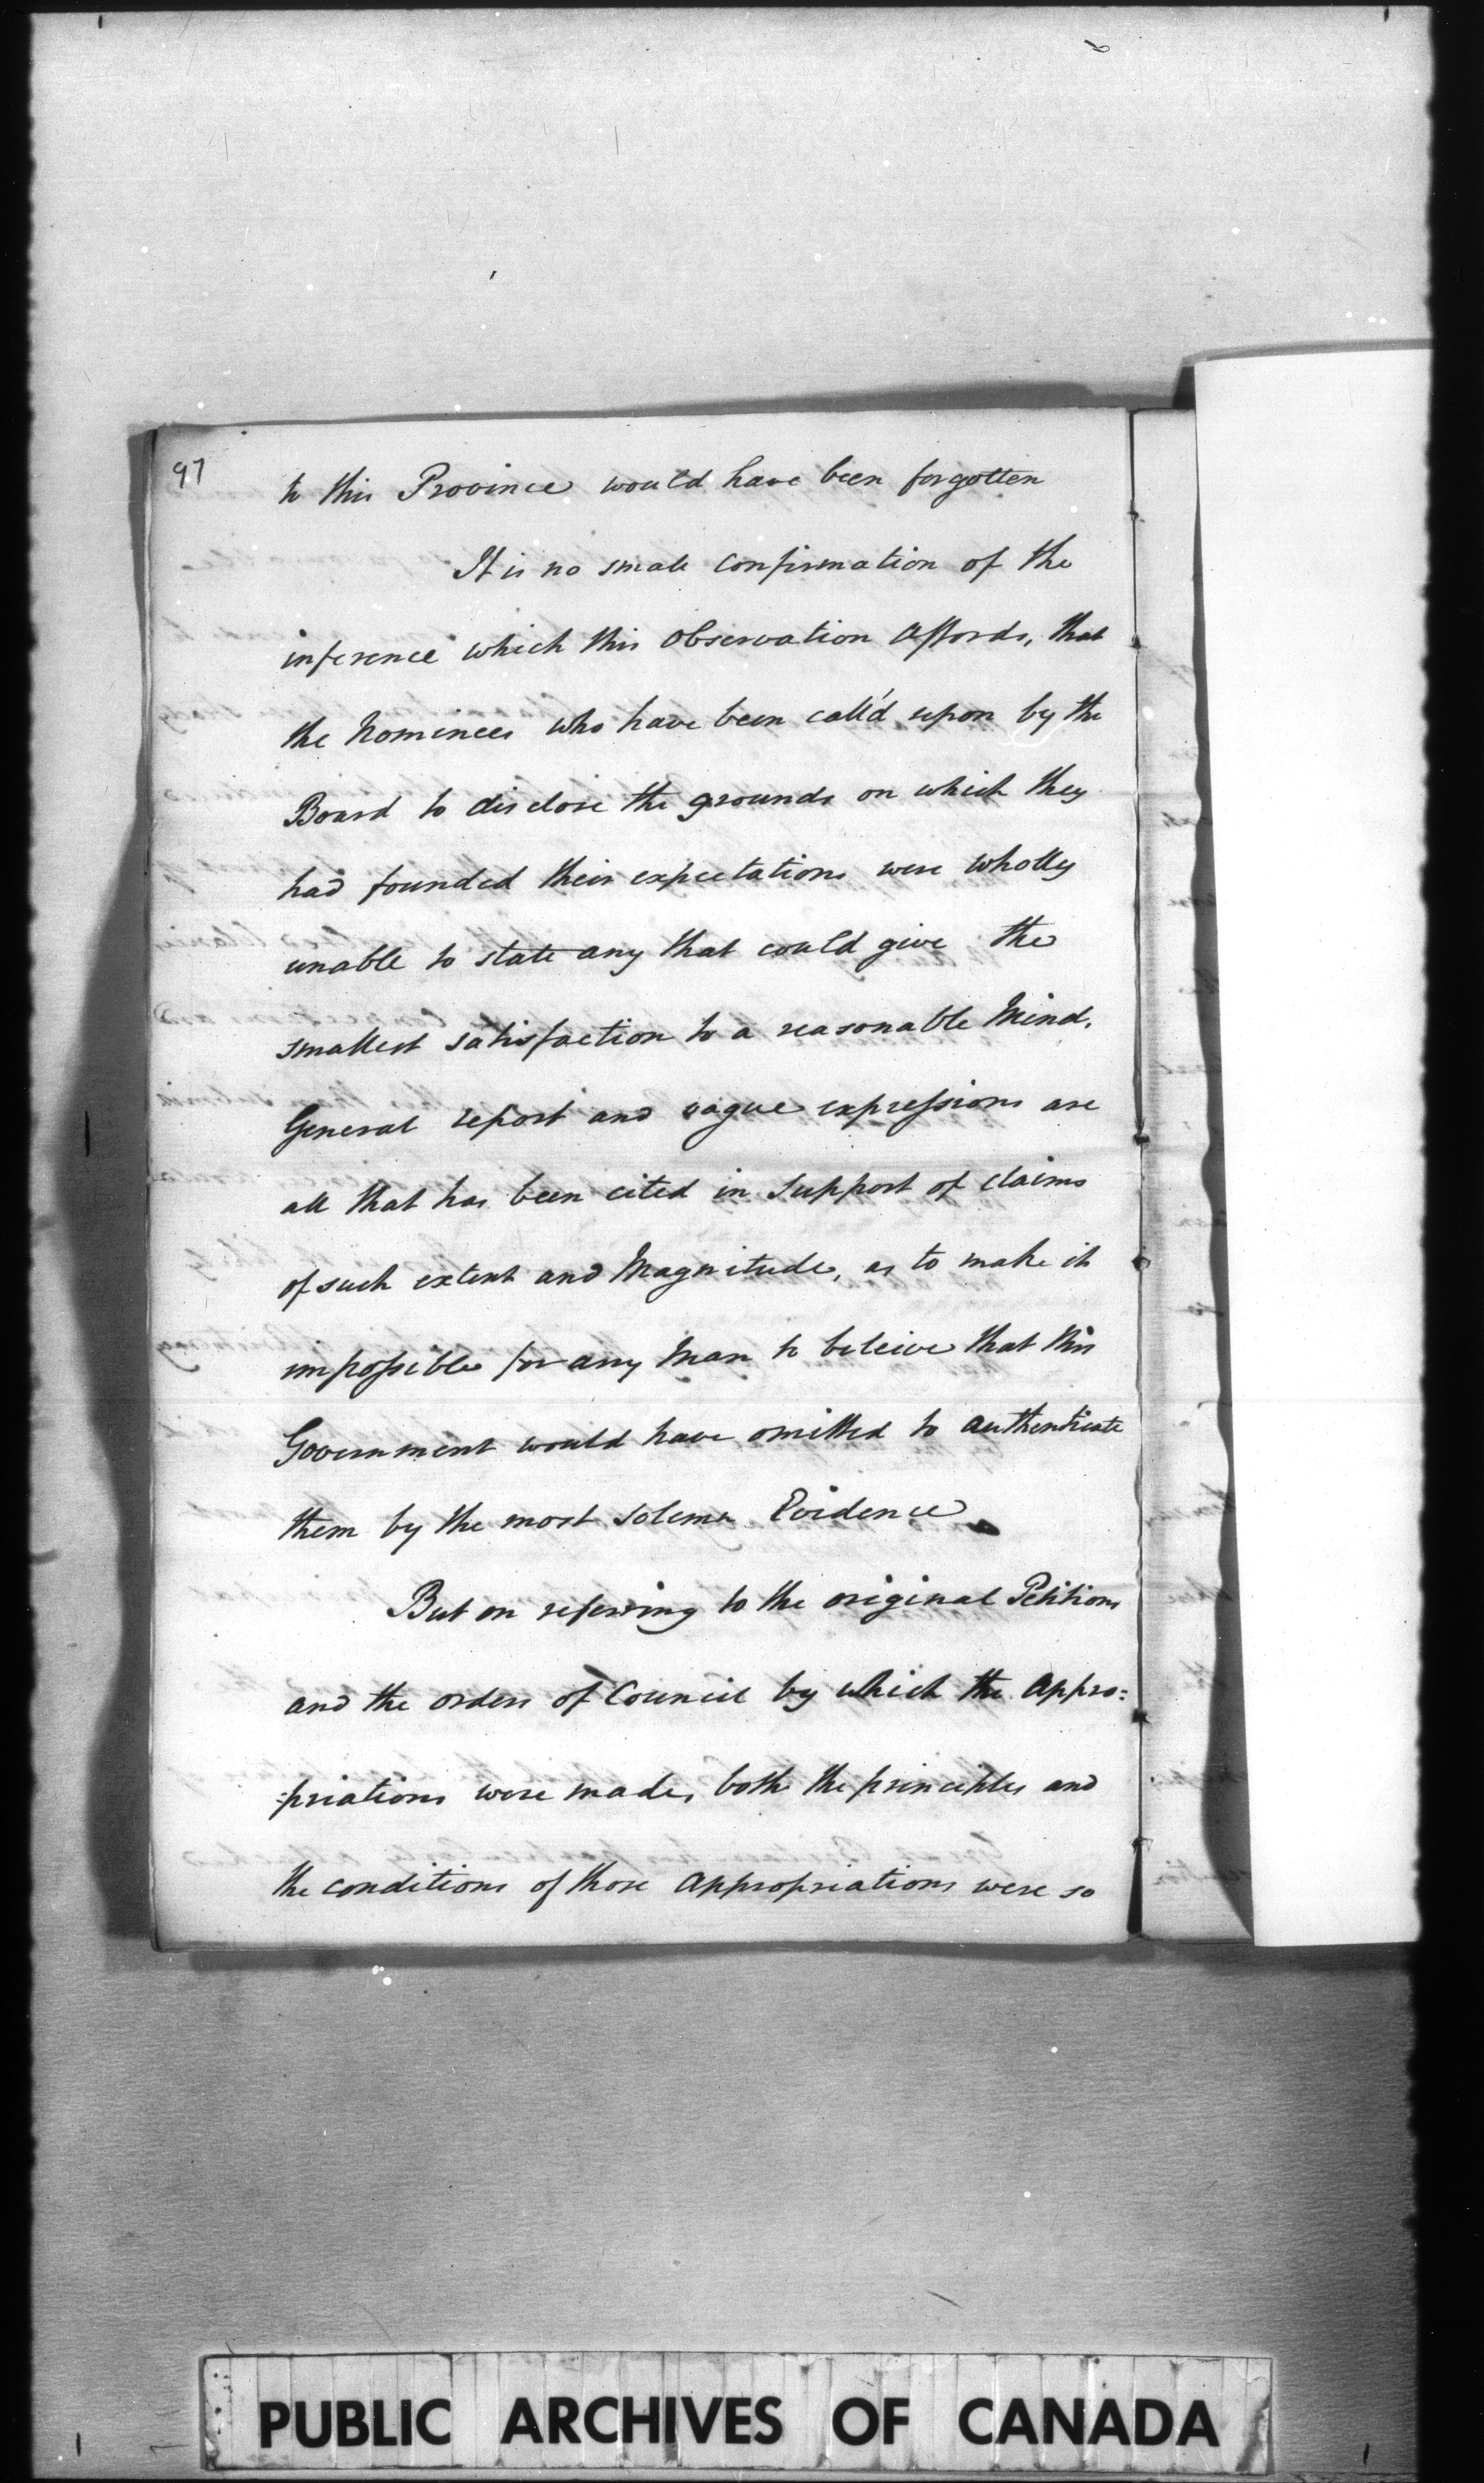 97
to this Province would have been forgotten
It is no small confirmation of the
inference which this Observation affords, that
the Nominees who have been call'd upon by the
Board to disclose the grounds on which they
had founded their expectations were wholly
unable to state any that could give the
smallest satisfaction to a reasonable Mind.
General report and vague expressions are
all that has been cited in Support of claims
of such extent and Magnitude, as to make it
impossible for any Man to beleive that this
Government would have omitted to authenticate
them by the most solemn Evidence
But on referring to the original Petitions
and the orders of Council by which the appro:
:priations were made, both the principles and
the conditions of those appropriations were so
PUBLIC ARCHIVES OF CANADA